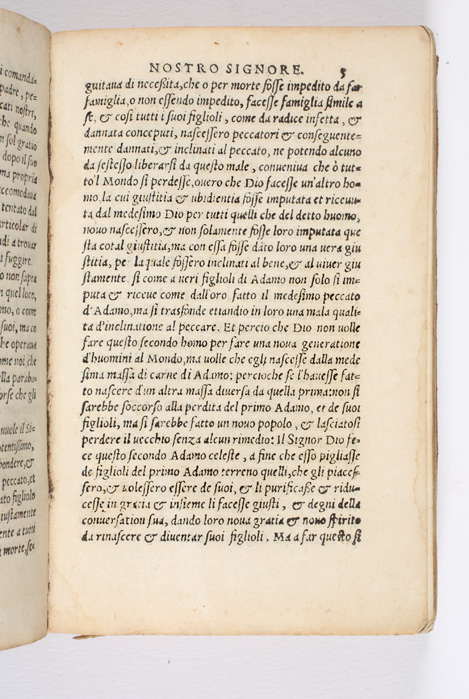 i comanda-
padre, pe-
cati nostri,
he quando
n sol gratio
dopo il suo
ma propria
accomodava
tentato dal
articolar di
di a trovar
i fuggire.
o non sapea
quel loco,
mo, come
suoi, ma co
he operava
ome noi che
lla parabo-
orse che gli
uuole il Si-
otentissimo,
pendere, &
peccato, et
ato figliolo
iustamente
ente a tutti
morte, se-
NOSTRO SIGNORE. 5
guitaua di neceßità, che o per morte foße impedito da far
famiglia, o non eßendo impedito, faceße famiglia simile a
se, & cosi tutti i suoi figlioli, come da radice infetta, &
dannata conceputi, nasceßero peccatori & conseguente-
mente dannati, & inclinati al peccato, ne potendo alcuno
da sesteßo liberarsi da questo male, conueniua che ò tut-
to'l Mondo si perdeße, ouero che Dio faceße un'altro ho-
mo, la cui giustitia & ubidientia foße imputata et riceuu-
ta dal medesimo Dio per tutti quelli che del detto huomo,
nouo nasceßero, & non solamente foße loro imputata que
sta cotal giustitia, ma con essa foße dato loro una uera giu
stitia, per la quale foßero inclinati al bene, & al uiuer giu
stamente. si come a ueri figlioli di Adamo non solo si im-
puta & riceue come dall'oro fatto il medesimo peccato
d'Adamo, ma si trasfonde etiandio in loro una mala quali
ta d'inclinatione al peccare. Et percio che Dio non uolle
fare questo secondo homo per fare una noua generatione
d'huomini al Mondo, ma uolle che egli nasceße dalla mede
sima massa di carne di Adamo: percioche se l'hauesse fat-
to nascere d'un altra massa diuersa da quella prima: non si
sarebbe soccorso alla perdita del primo Adamo, et de suoi
figlioli, ma si sarebbe fatto un nouo popolo, & lasciatosi
perdere il uecchio senza alcun rimedio: Il Signor Dio fe-
ce questo secondo Adamo celeste, a fine che esso pigliasse
de figlioli del primo Adamo terreno quelli, che gli piaces-
sero, & uolessero essere de suoi, & li purificaße & ridu-
cesse in gratia & insieme li facesse giusti, & degni della
conuersation sua, dando loro noua gratia & nouo spirito
da rinascere & diuentar suoi figlioli. Ma a far questo si